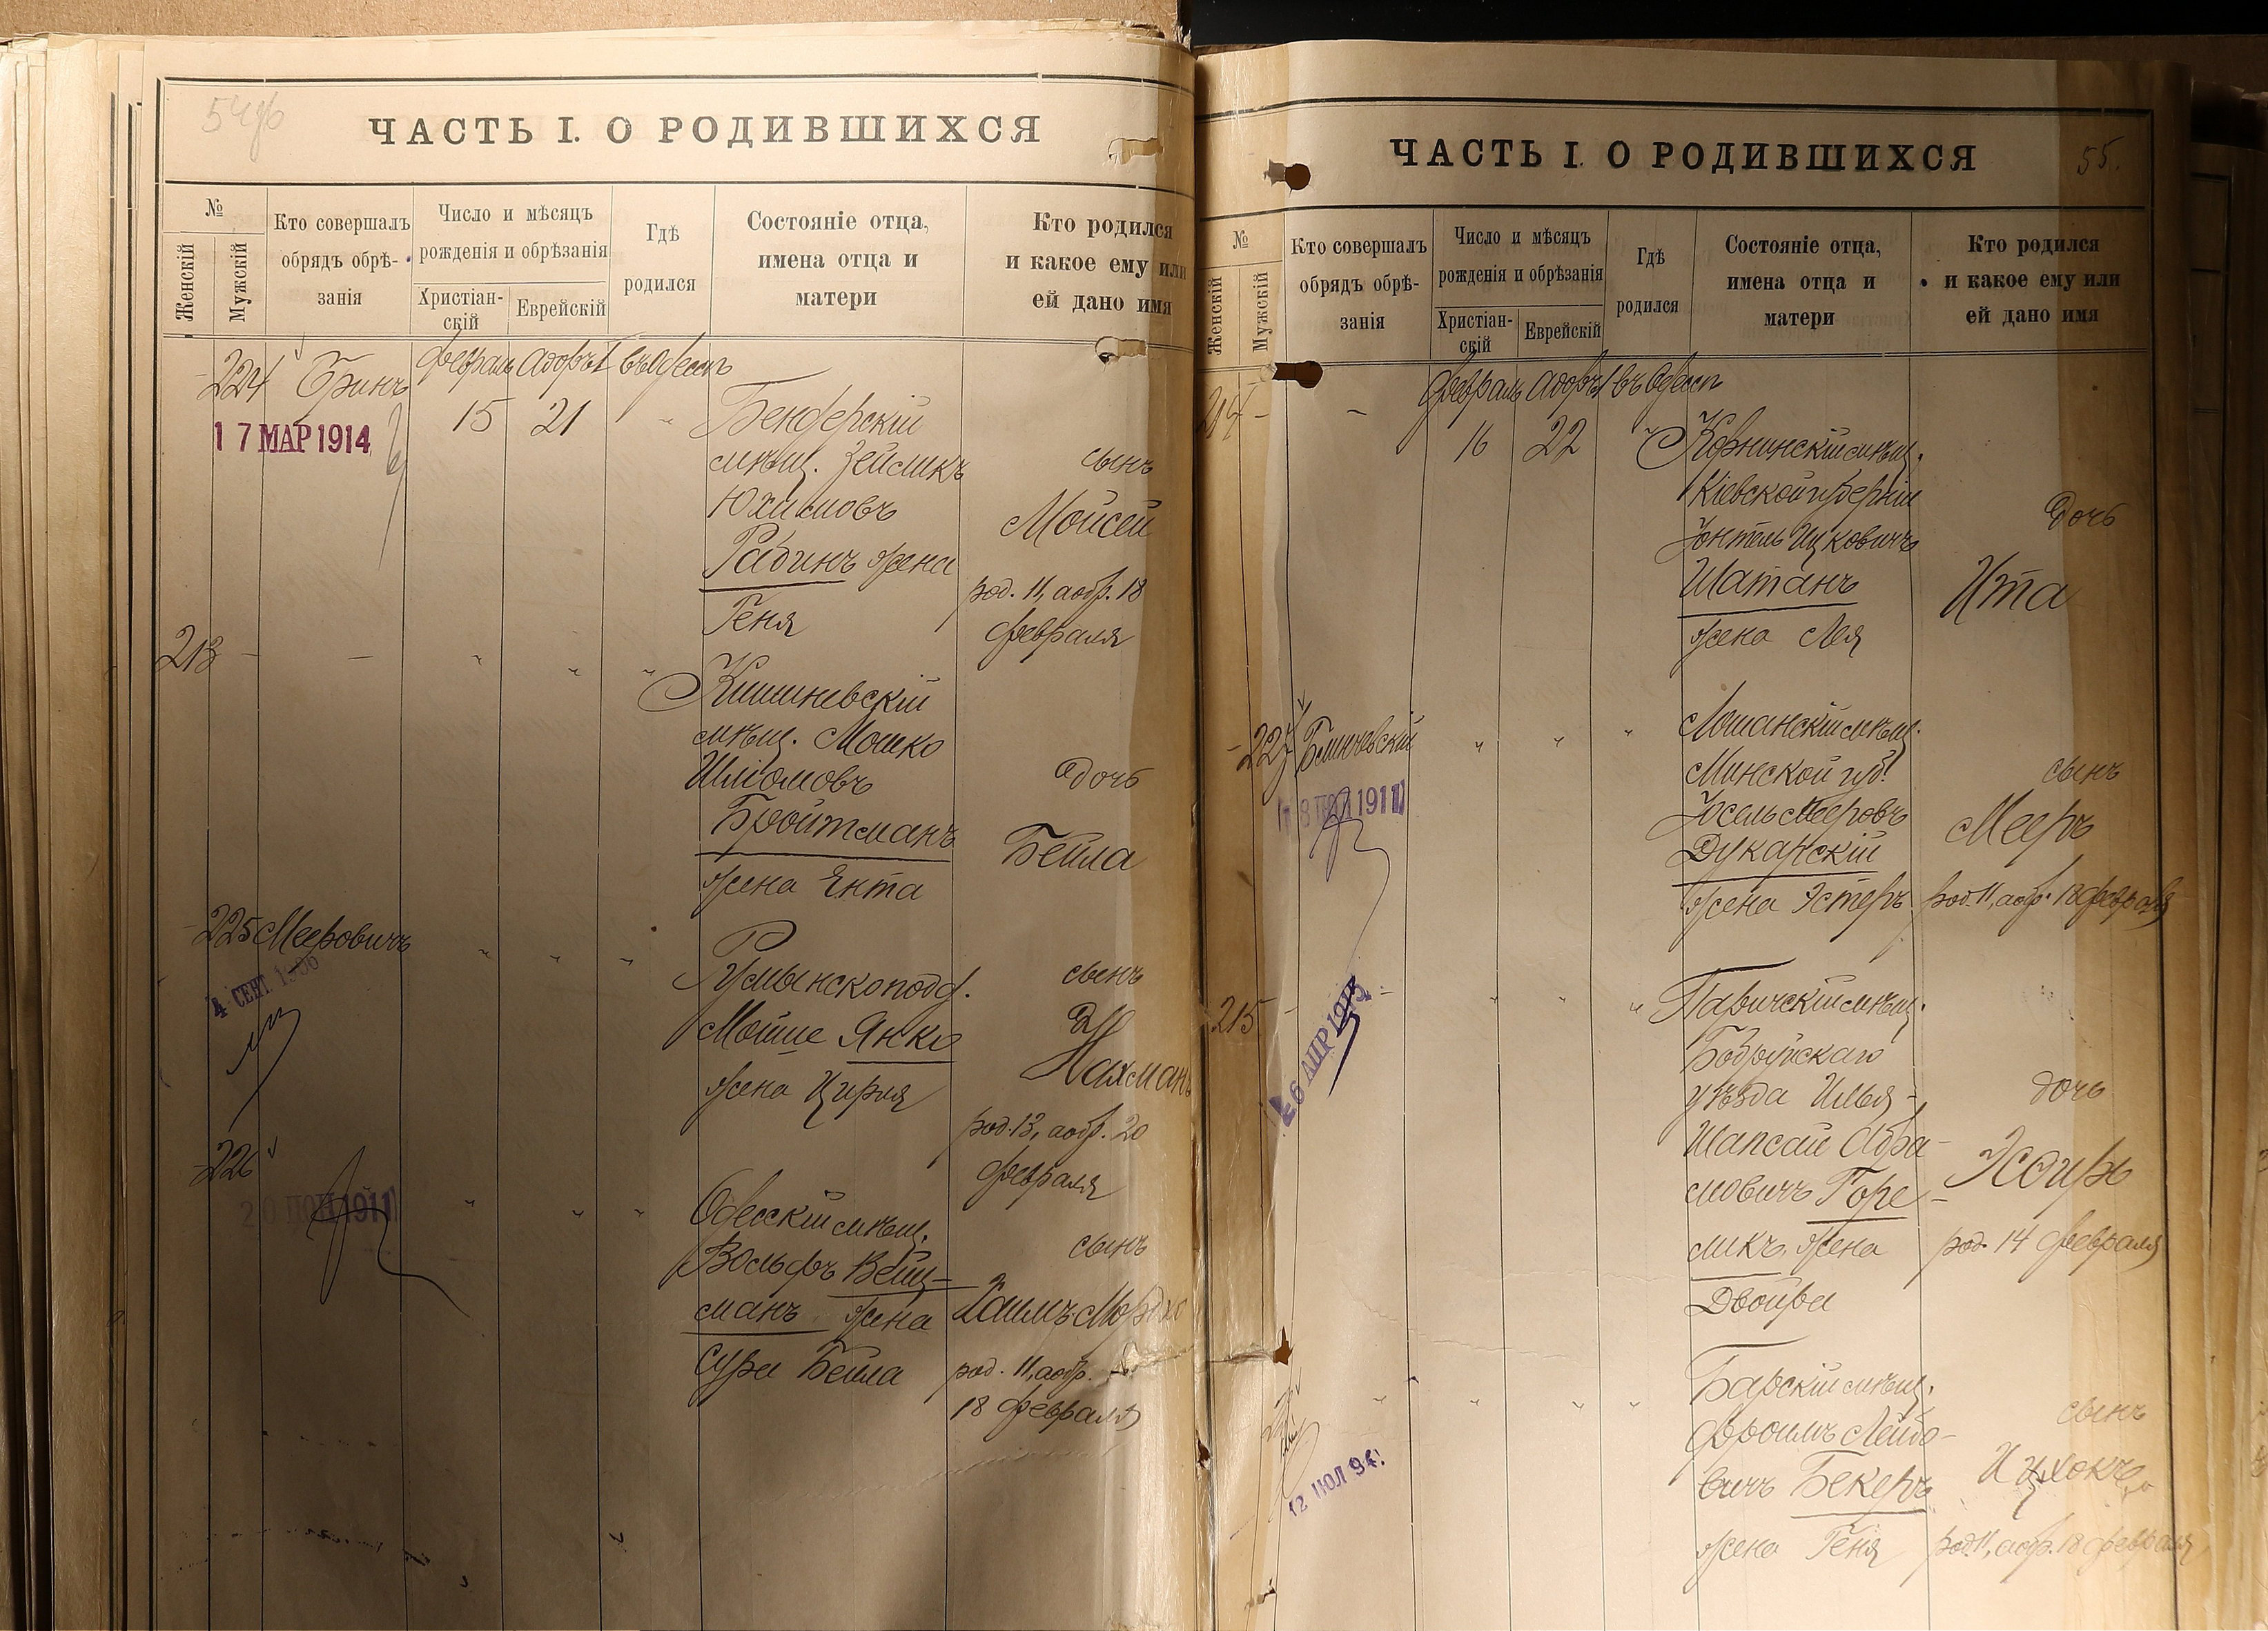 54 об
ЧАСТЬ I. О РОДИВШИХСЯ
№
Женскій
Мужскій
Кто совершалъ
обрядъ обрѣ-
занія
Число и мѣсяцъ
рожденія и обрѣзанія
Христіан-
скій
Еврейскій
Гдѣ
родился
Состояніе отца,
имена отца и
матери
Кто родился
и какое ему или
ей дано имя
224 Гринъ Февраль Адоръ I въ Одессѣ
17 МАР 1914
15 21
Бендерскій
мѣщ. Зейликъ
Юхимовъ
Рабинъ жена
Геня
сынъ
Мойсей
род. 11, а обр. 18
февраля
213 - -
Кишиневскій
мѣщ. Мошко
Шліомовъ
Бройтманъ
жена Ента
дочь
Бейла
225 Мееровичъ
4 СЕНТ. 1906
Румынскоподд.
Мойше Янко
жена Цирля
сынъ
Нахманъ
род. 13, а обр. 20
февраля
226
20 1911
Одесскій мѣщ.
Вольфъ Вейц-
манъ жена
Сура Бейла
сынъ
Хаимъ Мордко
род. 11, а обр.
18 февраля
55.
ЧАСТЬ I. О РОДИВШИХСЯ
№
Женскій
Мужскій
Кто совершалъ
обрядъ обрѣ-
занія
Число и мѣсяцъ
рожденія и обрѣзанія
Христіан-
скій
Еврейскій
Гдѣ
родился
Состояніе отца,
имена отца и
матери
Кто родился
и какое ему или
ей дано имя
214 - - Февраль Адоръ I въ Одессѣ
16 22
Корнинскій мѣщ.
Кіевской губерніи
Юнтель Ицковичъ
Шатанъ
жена Лея
дочь
Ита
227
1911
Лошанскій мѣщ.
Минской губ.
Іосель Мееровъ
Дуканскій
жена Эстеръ
сынъ
Мееръ
род. 11, а обр. 18 февраля
215 - -
26 АПР 1915
Паричскій мѣщ.
Бобруйскаго
уѣзда Илья-
Шапсай Абра-
мовичъ Горе-
ликъ, жена
Двойра
дочь
Эсѳирь
род. 14 февраля
12 ІЮЛ 94.
Барскій мѣщ.
Фроимъ Лейбо-
вичъ Бекеръ
жена Геня
сынъ
Ицхокъ
род. 11, а обр. 18 февраля